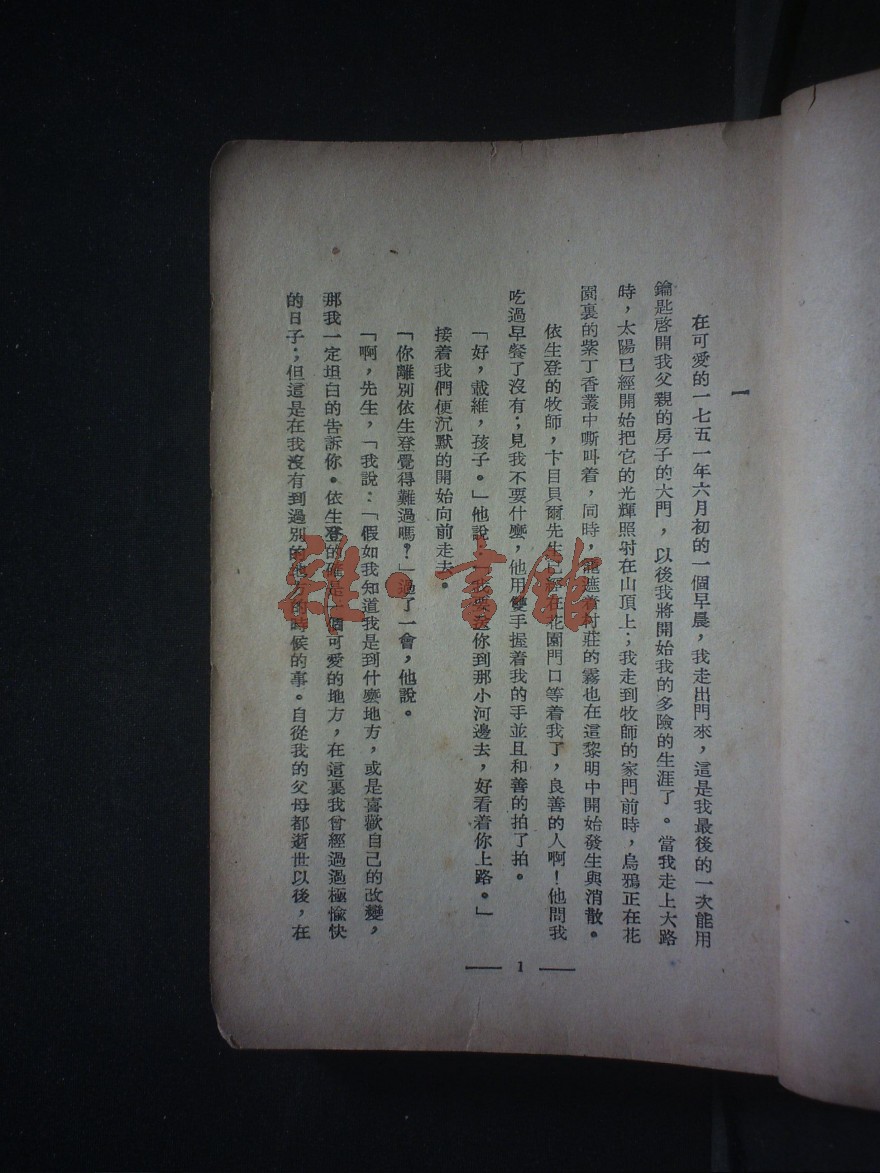 一
在可愛的一七五一年六月初的一個早晨，我走出門來，這是我最後的一次能用
鑰匙啓開我父親的房子的大門，以後我將開始我的多險的生涯了。當我走上大路
時，太陽已經開始把它的光輝照射在山頂上；我走到牧師的家門前時，烏鴉正在花
園裏的紫丁香叢中嘶叫着，同時，籠遮着村莊的霧也在這黎明中開始發生與消散。
依生登的牧師，卞目貝爾先生已經在花園門口等着我了，良善的人啊！他問我
吃過早餐了沒有；見我不要什麼，他用雙手握着我的手並且和善的拍了拍。
「好，戴維，孩子。」他說，「我要送你到那小河邊去，好看着你上路。」
接着我們便沉默的開始向前走去。
「你離別依生登覺得難過嗎？」過了一會，他說。
「啊，先生，「我說：「假如我知道我是到什麼地方，或是喜歡自己的改變，
那我一定坦白的告訴你。依生登的確是一個可愛的地方，在這裏我曾經過過極愉快
的日子；但這是在我沒有到過別的地方的時候的事。自從我的父母都逝世以後，在
1
雜·書館